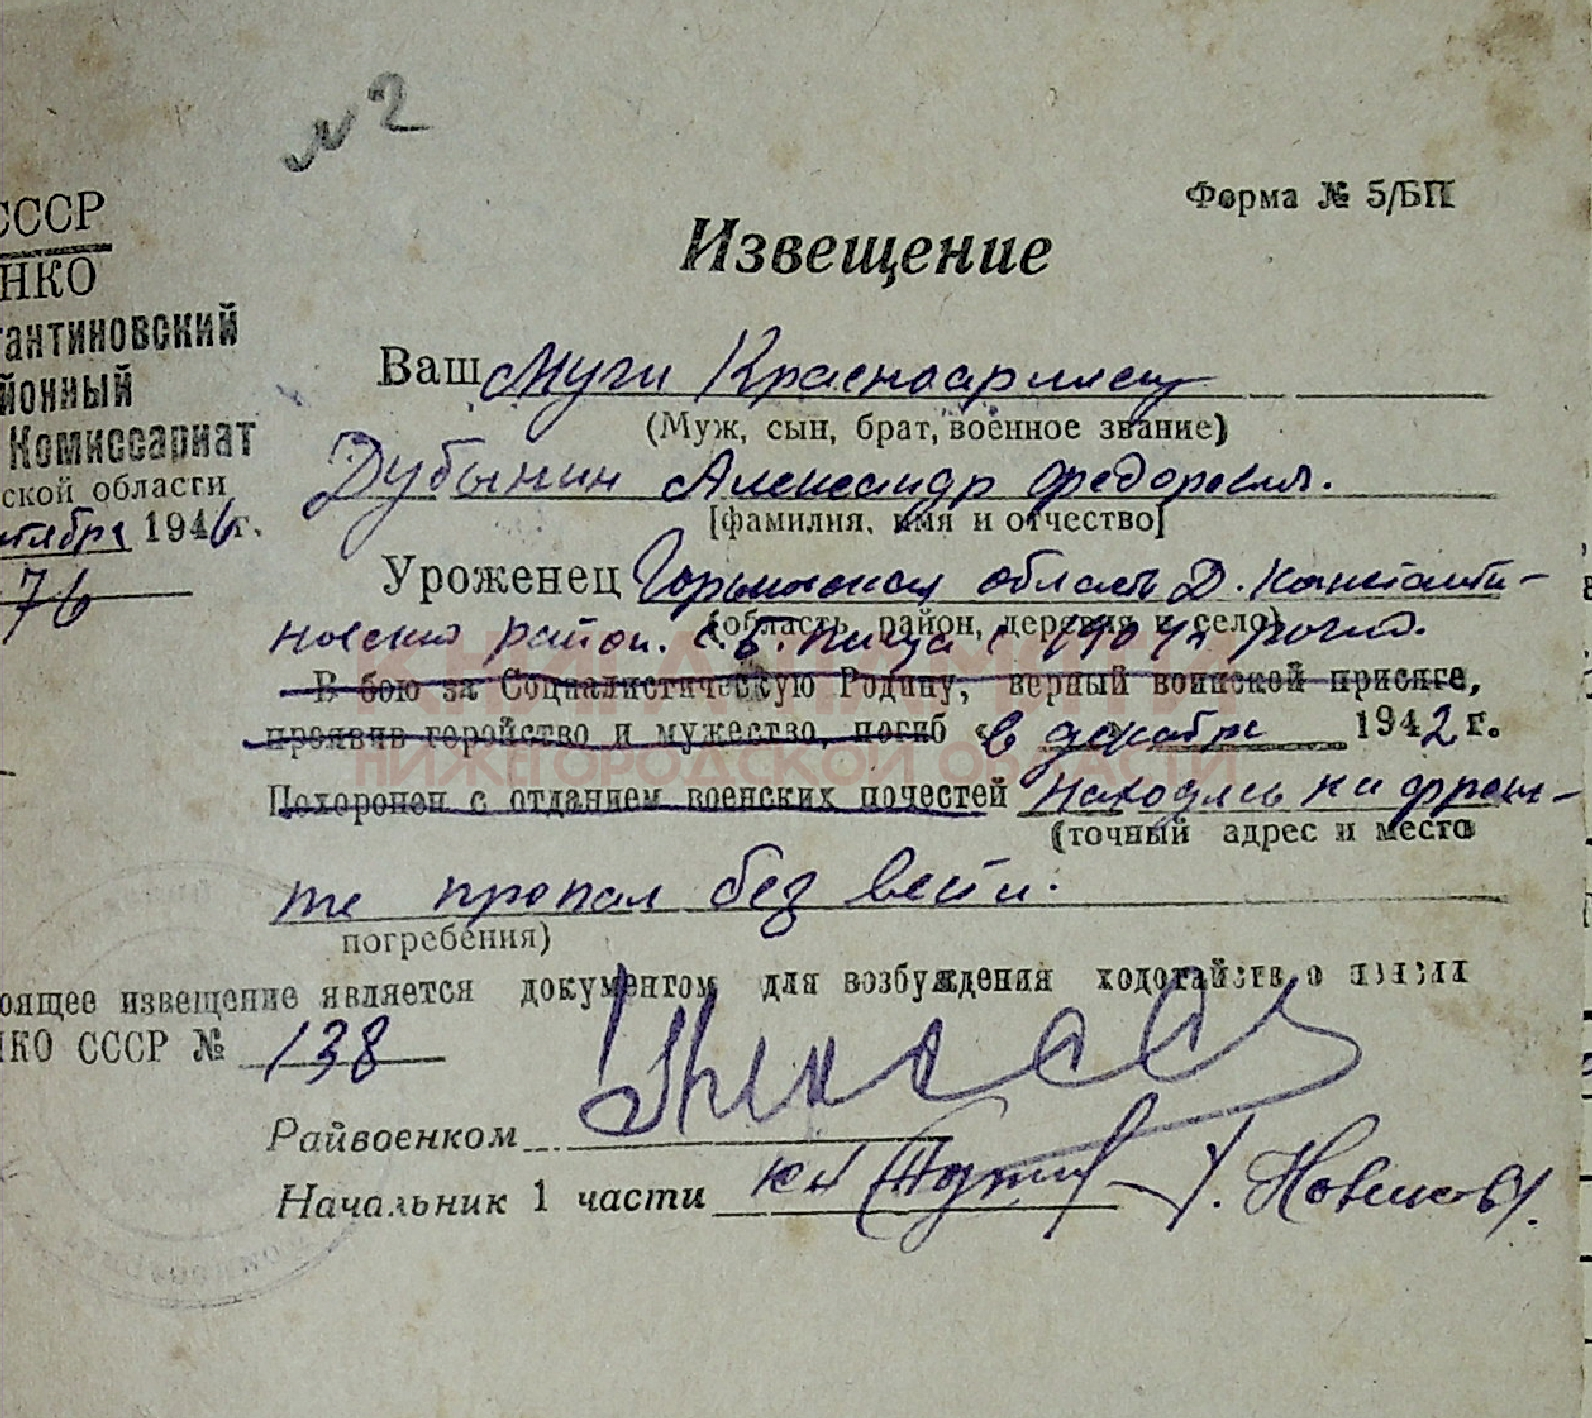 № 2
Форма № 5/БП
СССР
НКО
тантиновский
йонный
Комиссариат
ской области
тября 1946 г.
76
Извещение
Ваш муж Красноармеец
(Муж, сын, брат, военное звание)
Дубынин Александр Федорович.
[фамилия, имя и отчество]
Уроженец Горьковская область Д. Константи-
(область, район, деревня и село)
новский район. с. Б. Пица с 1904 г. рожд.
КНИГА ПАМЯТИ
В бою за Социалистическую Родину, верный воинской присяге,
проявив геройство и мужество, погиб « в декабре 1942 г.
НИЖЕГОРОДСКОЙ ОБЛАСТИ
Похоронен с отданием военских почестей находясь на фрон-
(точный адрес и место
те пропал без вести.
погребения)
оящее извещение является документом для возбуждения ходотайств о пенсии
НКО СССР № 138
Райвоенком
Начальник 1 части